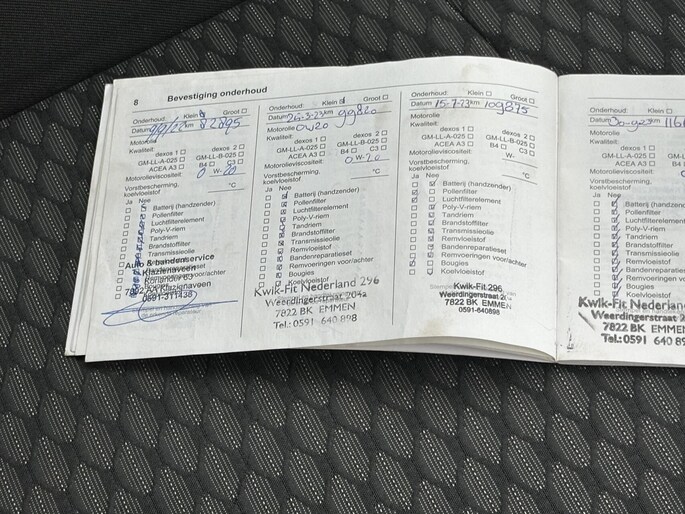 8 Bevestiging onderhoud
Onderhoud: Klein Groot
Datum km 82895
Motorolie
Kwaliteit:
dexos 1 dexos 2
GM-LL-A-025 GM-LL-B-025
ACEA A3 B4 C3
Motorolieviscositeit: 0 W- 20
Vorstbescherming, koelvloeistof °C
Ja Nee
Batterij (handzender)
Pollenfilter
Luchtfilterelement
Poly-V-riem
Tandriem
Brandstoffilter
Transmissieolie
Remvloeistof
Auto & bandenservice
Klazienaveen
7822 AA Klazienaveen
0591-311438
Onderhoud: Klein Groot
Datum 26-3-23 km 99820
Motorolie 0W20
Kwaliteit:
dexos 1 dexos 2
GM-LL-A-025 GM-LL-B-025
ACEA A3 B4 C3
Motorolieviscositeit: 0 W-20
Vorstbescherming,
koelvloeistof °C
Ja Nee
Batterij (handzender)
Pollenfilter
Luchtfilterelement
Poly-V-riem
Tandriem
Brandstoffilter
Transmissieolie
Remvloeistof
Bandenreparatieset
Remvoeringen voor/achter
Bougies
Koelvloeistof
Kwik-Fit Nederland 296
Weerdingerstraat 204a
7822 BK EMMEN
Tel.: 0591 640 898
Onderhoud: Klein Groot
Datum 15-7-23 km 109875
Motorolie
Kwaliteit:
dexos 1 dexos 2
GM-LL-A-025 GM-LL-B-025
ACEA A3 B4 C3
Motorolieviscositeit: W-
Vorstbescherming,
koelvloeistof °C
Ja Nee
Batterij (handzender)
Pollenfilter
Luchtfilterelement
Poly-V-riem
Tandriem
Brandstoffilter
Transmissieolie
Remvloeistof
Bandenreparatieset
Remvoeringen voor/achter
Bougies
Koelvloeistof
Kwik-Fit 296
Weerdingerstraat
7822 BK EMMEN
0591-640898
Onderhoud: Klein
Datum km
Motorolie
Kwaliteit:
dexos 1
GM-LL-A-025 GM-LL
ACEA A3 B4
Motorolieviscositeit:
Vorstbescherming,
koelvloeistof
Ja Nee
Batterij (handzender)
Pollenfilter
Luchtfilterelement
Poly-V-riem
Tandriem
Brandstoffilter
Transmissieolie
Remvloeistof
Bandenreparatieset
Remvoeringen
Bougies
Koelvloeistof
Kwik-Fit Nederlan
Weerdingerstraat 2
7822 BK EMME
Tel.: 0591 640 89